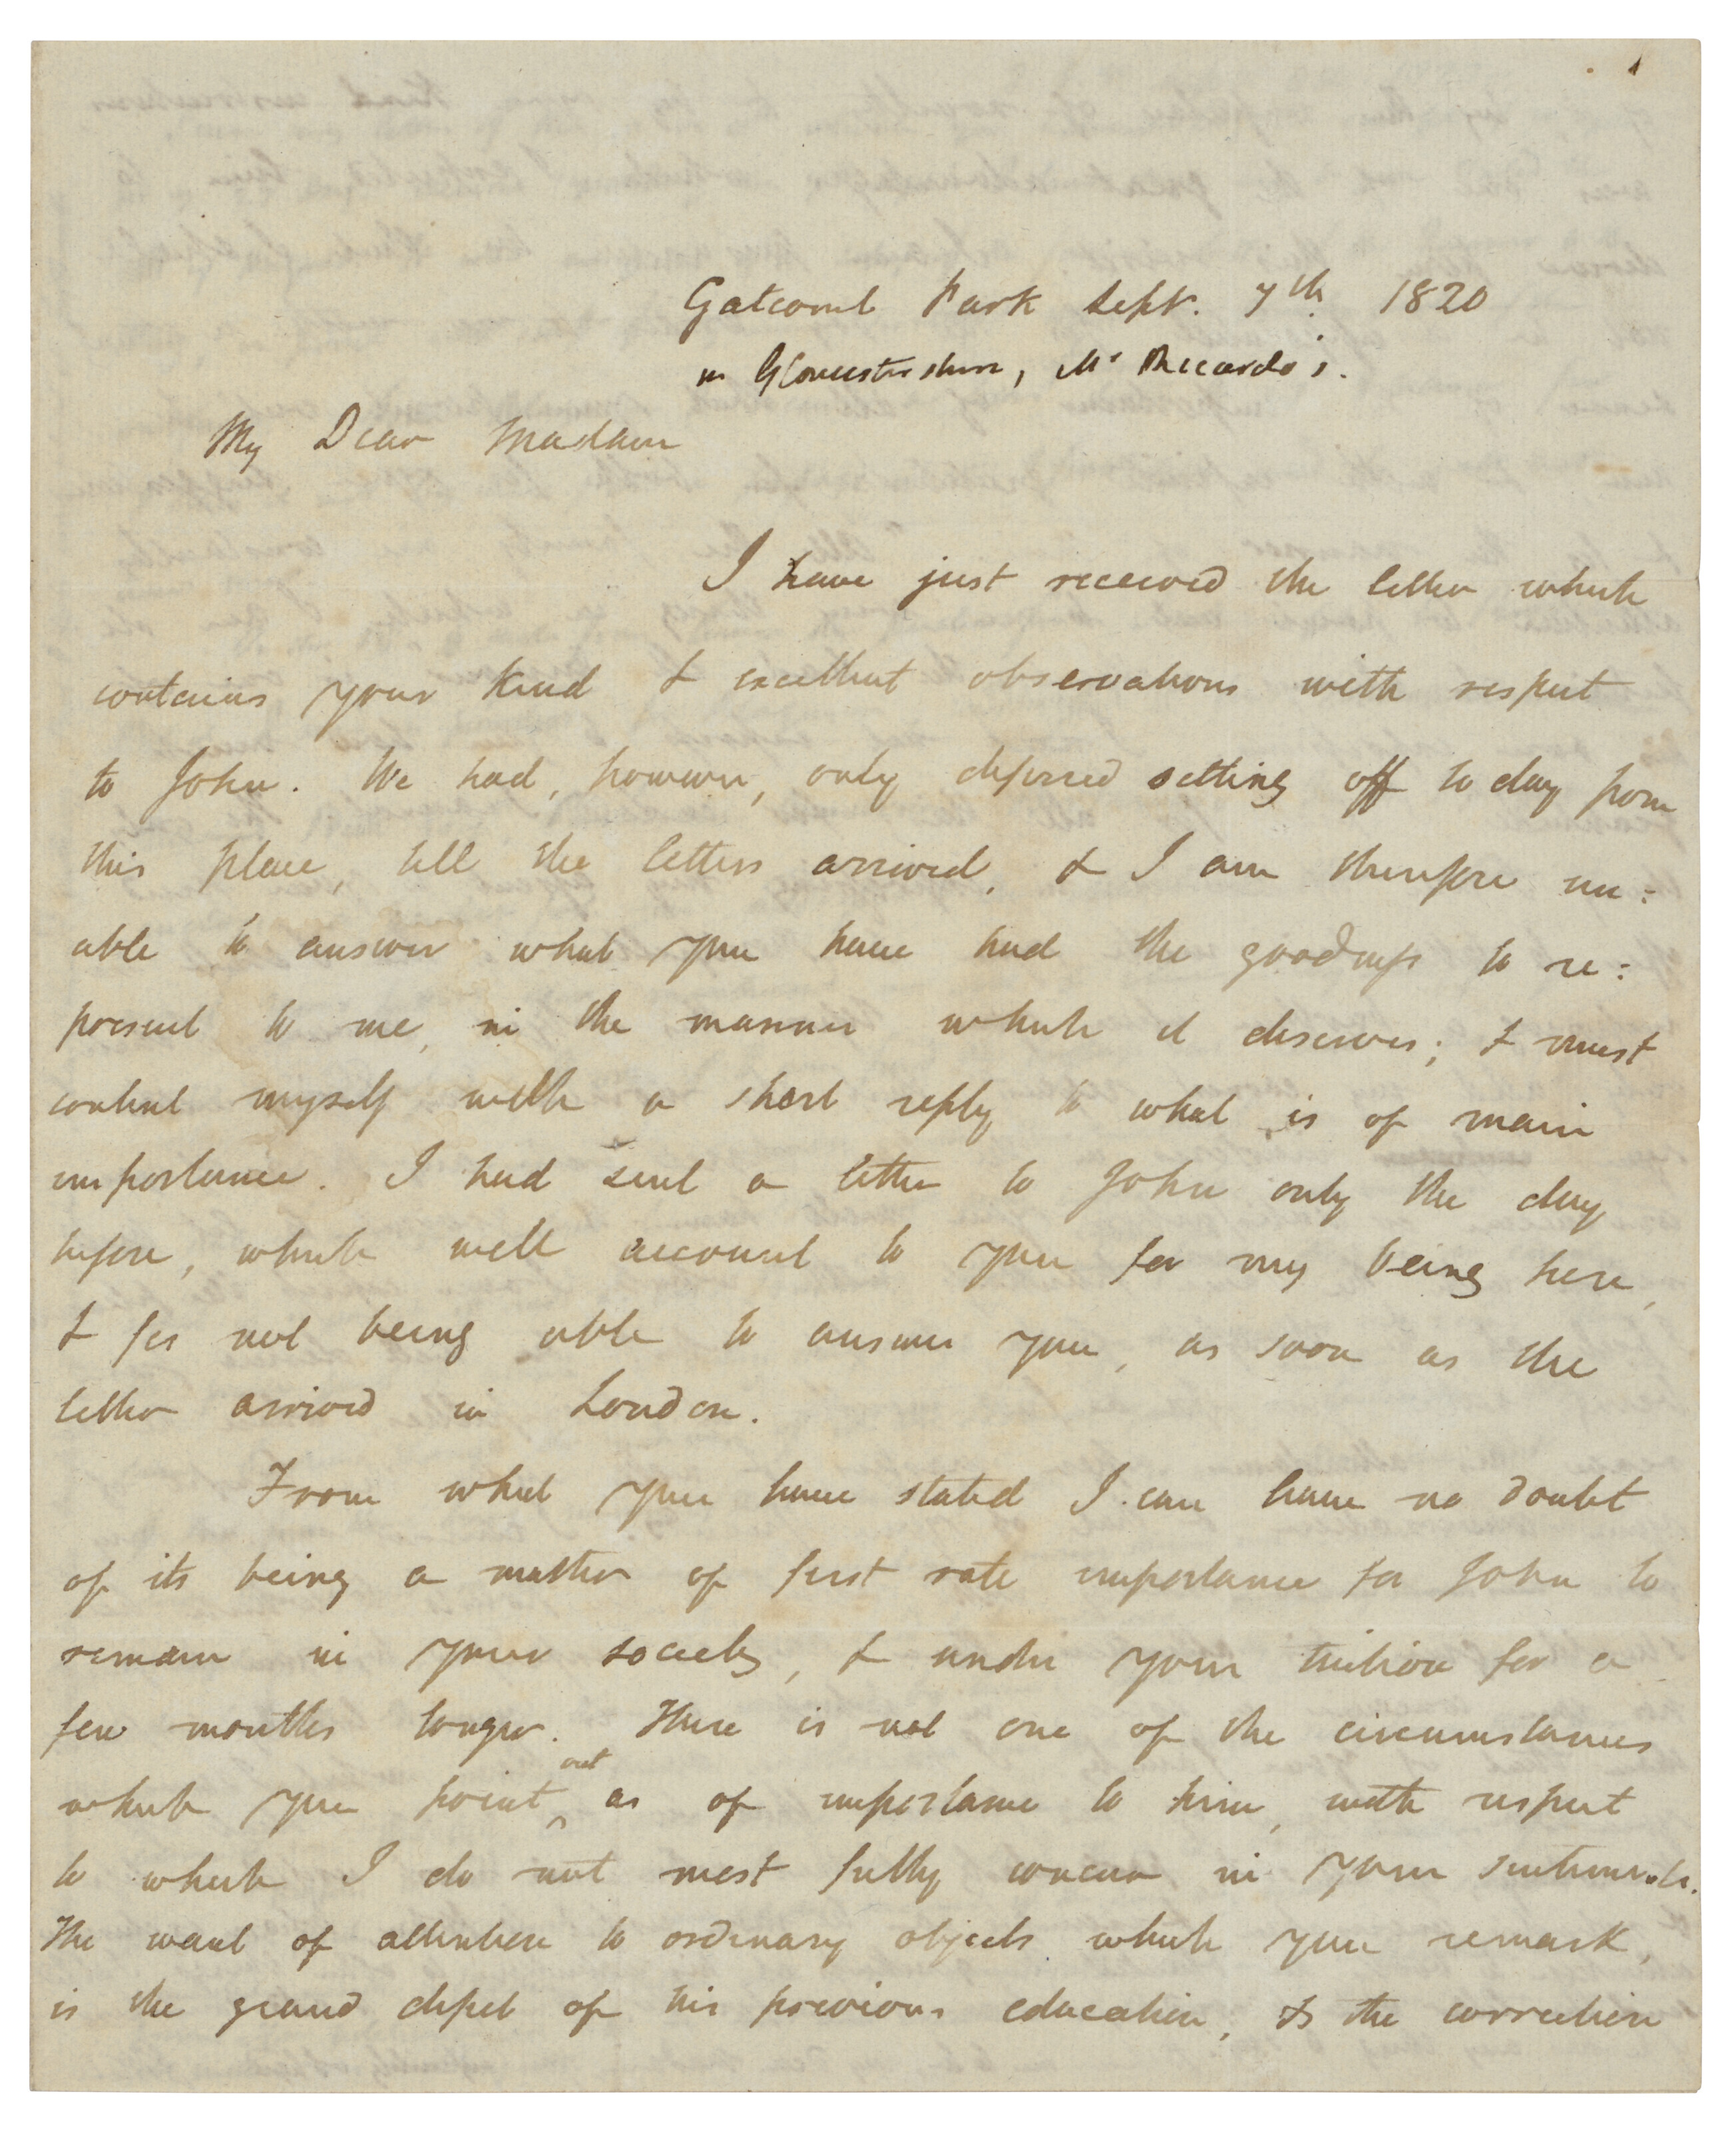 Gatcomb Park Sept. 7th. 1820
in Gloucestershire, Mr Riccardo's.
My Dear Madam
I have just received the letter which
contains your kind & excellent observations with respect
to John. We had, however, only deferred setting off to day from
this place, till the letters arrived, & I am therefore un:
able to answer what you have had the goodness to re:
present to me, in the manner which it deserves; & must
content myself with a short reply to what is of main
importance. I had sent a letter to John only the day
before, which will account to you for my being here,
& for not being able to answer you, as soon as the
letter arrived in London.
From what you have stated I can have no doubt
of its being a matter of first rate importance for John to
remain in your society, & under your tuition for a
few months longer. There is not one of the circumstances
which you point out as of importance to him, with respect
to which I do not most fully concur in your sentiments.
The want of attention to ordinary objects which you remark,
is the grand defect of his previous education, & the correction